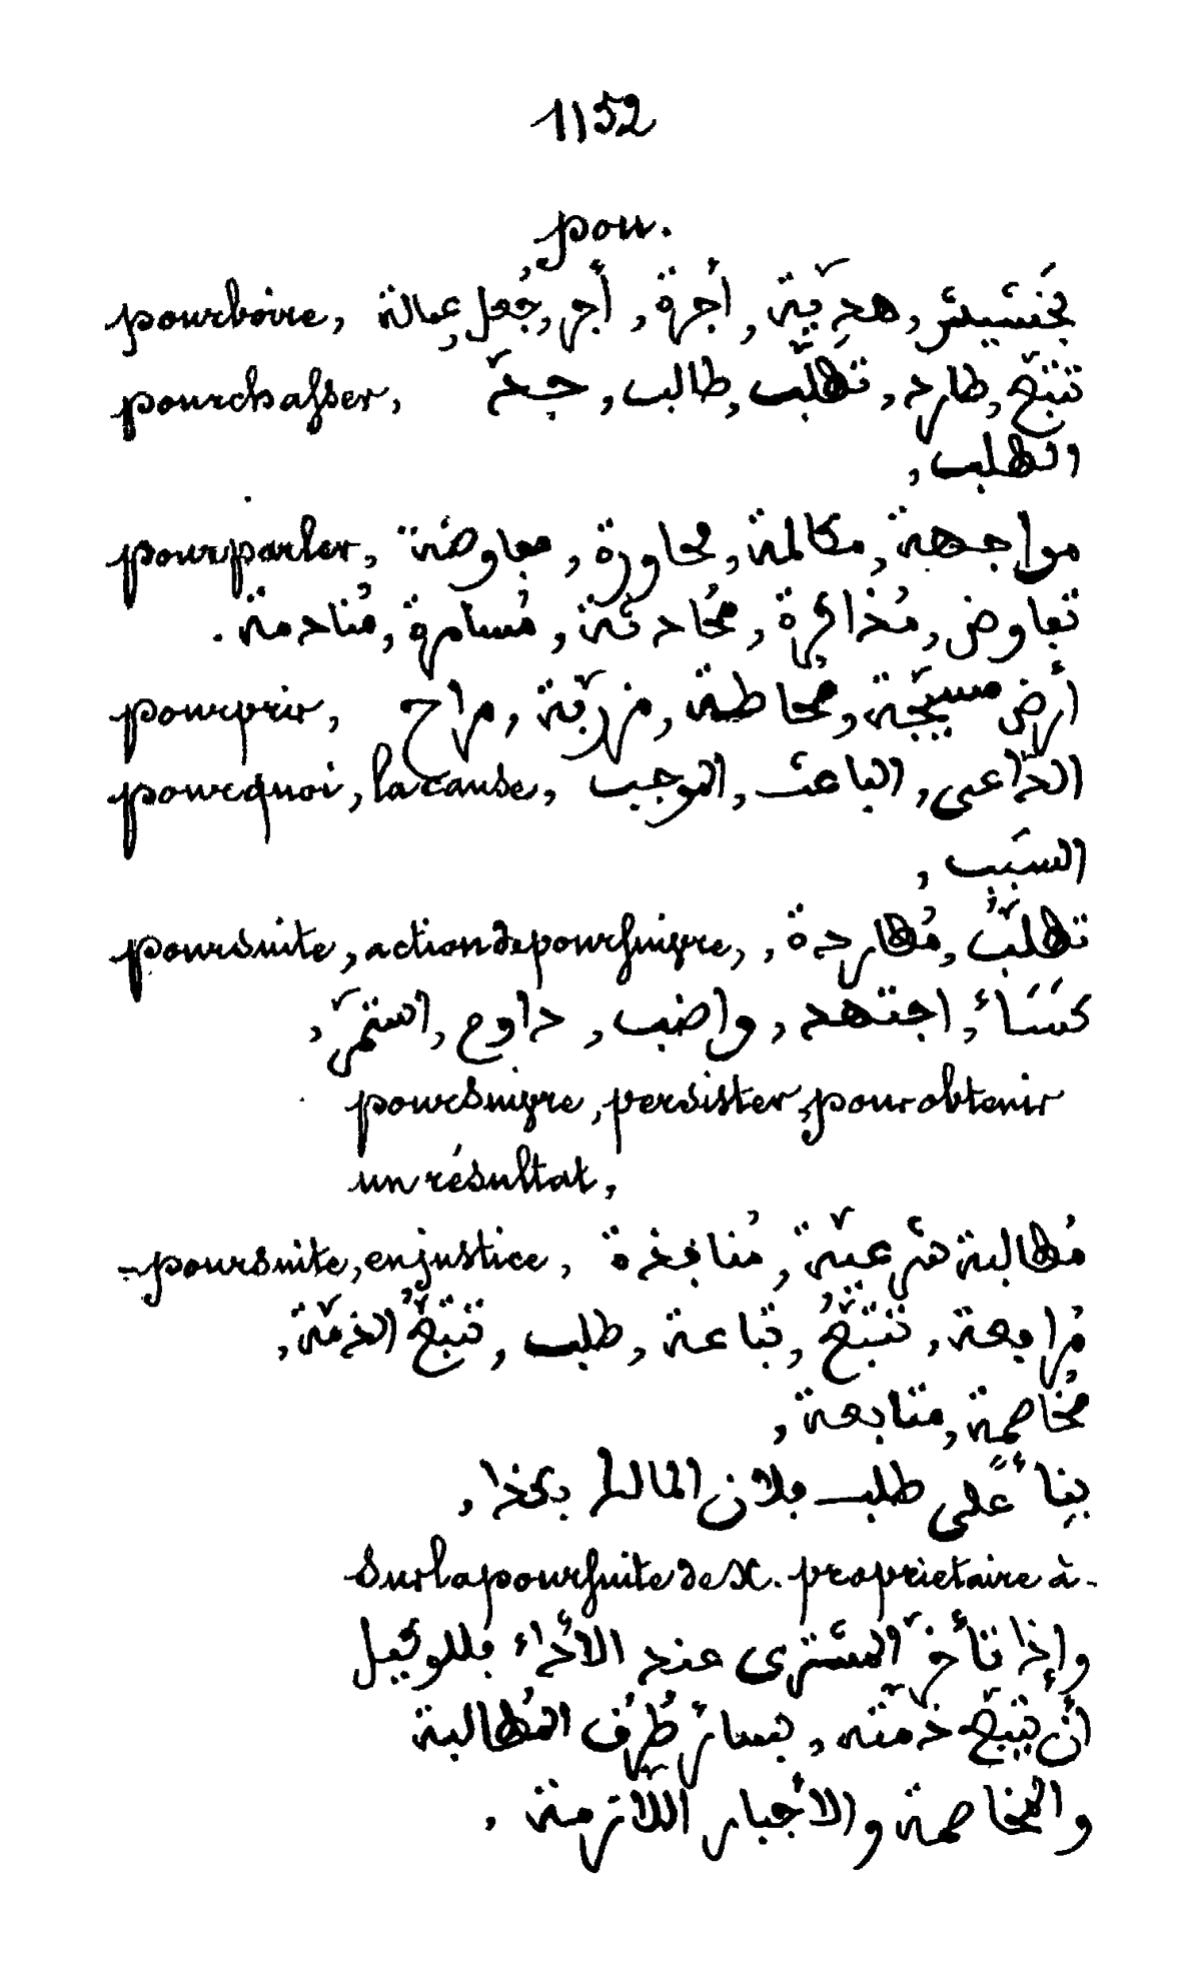 1152
pou.
pourboire, بَخشيش, هدِيّة, أُجرة, أَجر, جُعل, عِمالة
pourchasser, تتبّع, طارد, تطلّب, طالب, جدّ
الطلب,
pourparler, مواجهة, مكالمة, محاورة, مفاوضة
تفاوض, مُذاكرة, مُحادثة, مُسامرة, مُنادمة.
pourpris, أرض مسيّجة, مُحاطة, مزربّة, مراح
pourquoi, la cause, الدّاعى, الباعث, الموجب
السبَب,
poursuite, action de poursuivre, تطلّبُ, مُطاردة,
اجتهد, واضب, داوم, استمرّ,
poursuivre, persister, pour obtenir
un résultat,
- poursuite, en justice, مُطالبة شرعيّة, مُنافذة
مُرافعة, تتبّعُ, تباعة, طلب, تتبّعُ الذمّة,
مُخاصمة, متابعة,
بناءً على طلب فلان المالك بكذا,
sur la poursuite de X. propriétaire à -
وإذا تأخّر المشترى عند الأداء فللوكيل
أن يتبّع ذمّته, بسائر طُرُف المُطالبة
والمُخاصمة والأجبار اللّازمة.